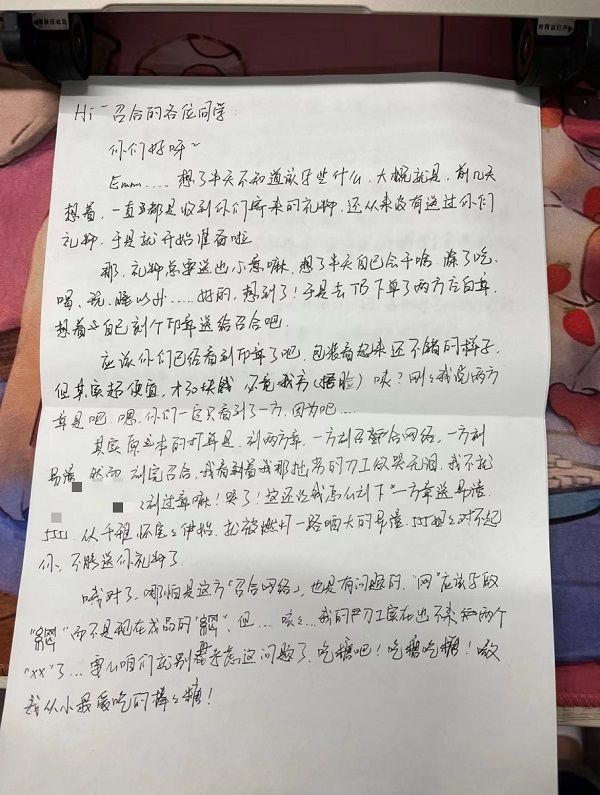 Hi~召合的各位同学:
你们好呀~
Emm.... 想了半天不知道该写些什么. 大概就是, 前几天
想着, 一直都是收到你们寄来的礼物, 还从来没有送过你们
礼物. 于是就开始准备啦
那, 礼物总要送出心意嘛. 想了半天自己会干啥. 除了吃、
喝、说、睡以外..... 好的, 想到了! 于是去TB下单了两方石章,
想着自己刻个印章送给召合吧.
应该你们已经看到印章了吧, 包装看起来还不错的样子,
但其实超便宜, 才30块钱 (捂脸) 咦? 刚刚我说两方
章是吧. 嗯. 你们一定只看到了一方. 因为吧....
其实原本的打算是, 刻两方章. 一方刻召合网络, 一方刻
易潽 然而 刻完召合, 我看着我那扎实的刀工欲哭无泪. 我不就
刻过章嘛! 哭了! 这还让我怎么刻下一方章送易潽.
555. 从千狐 怀宝宝伊始, 就被燃灯一路哺大的易潽. 555想想对不起
你, 不能送你礼物了
哦对了, 哪怕是这方「召合网络」, 也是有问题的. "网"应该写做
"網" 而不是现在成品的"網". 但... 咳咳... 我的刀工实在也不来扣两个
"xx"了... 要么咱们就别考虑这问题了. 吃糖吧! 吃糖吃糖! 嗷
我从小最爱吃的棒棒糖!